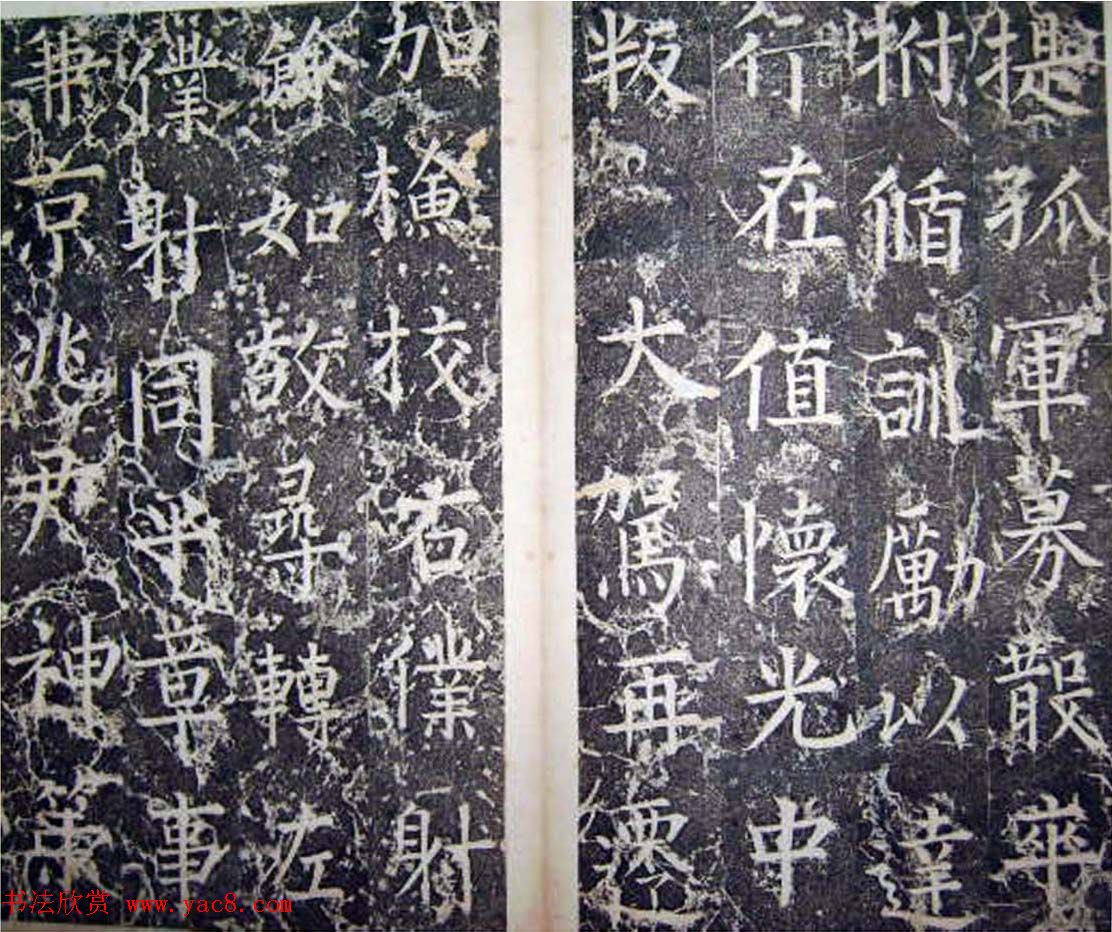 提孤軍募散卒
拊循訓勵以達
行在值懷光中
叛大駕再遷
加檢校右僕射
餘如故尋轉左
僕射同平章事
兼京兆尹神策
书法欣赏 www.yac8.com